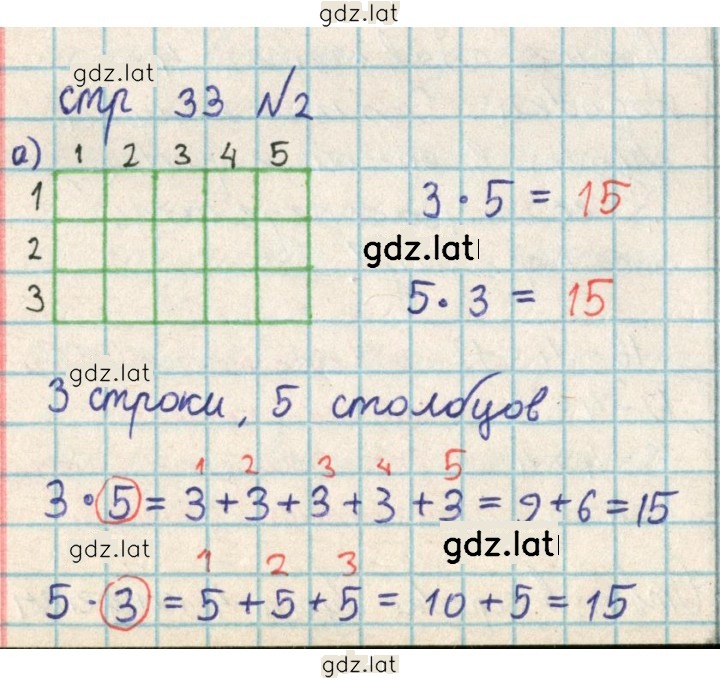 gdz.lat
gdz.lat
стр 33 №2
а) 1 2 3 4 5
1
3 · 5 = 15
2
gdz.lat
3
5 · 3 = 15
gdz.lat
3 строки, 5 столбцов
1 2 3 4 5
3 · 5 = 3 + 3 + 3 + 3 + 3 = 9 + 6 = 15
gdz.lat
gdz.lat
1 2 3
5 · 3 = 5 + 5 + 5 = 10 + 5 = 15
gdz.lat